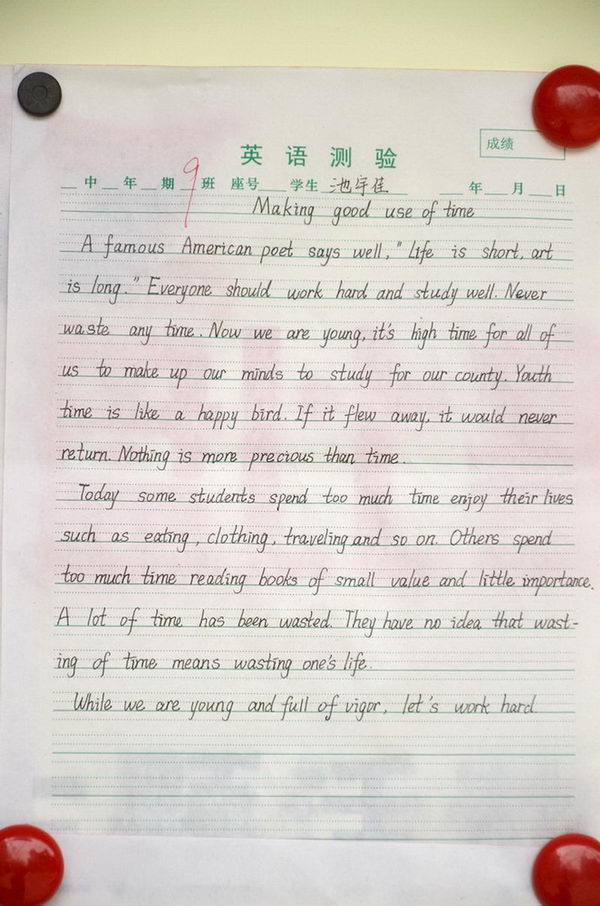 英语测验
成绩
中 年 期 9 班 座号 学生 池宇佳 年 月 日
Making good use of time
A famous American poet says well, "Life is short, art
is long." Everyone should work hard and study well. Never
waste any time. Now we are young, it's high time for all of
us to make up our minds to study for our county. Youth
time is like a happy bird. If it flew away, it would never
return. Nothing is more precious than time.
Today some students spend too much time enjoy their lives
such as eating, clothing, traveling and so on. Others spend
too much time reading books of small value and little importance.
A lot of time has been wasted. They have no idea that wast-
ing of time means wasting one's life.
While we are young and full of vigor, let's work hard.